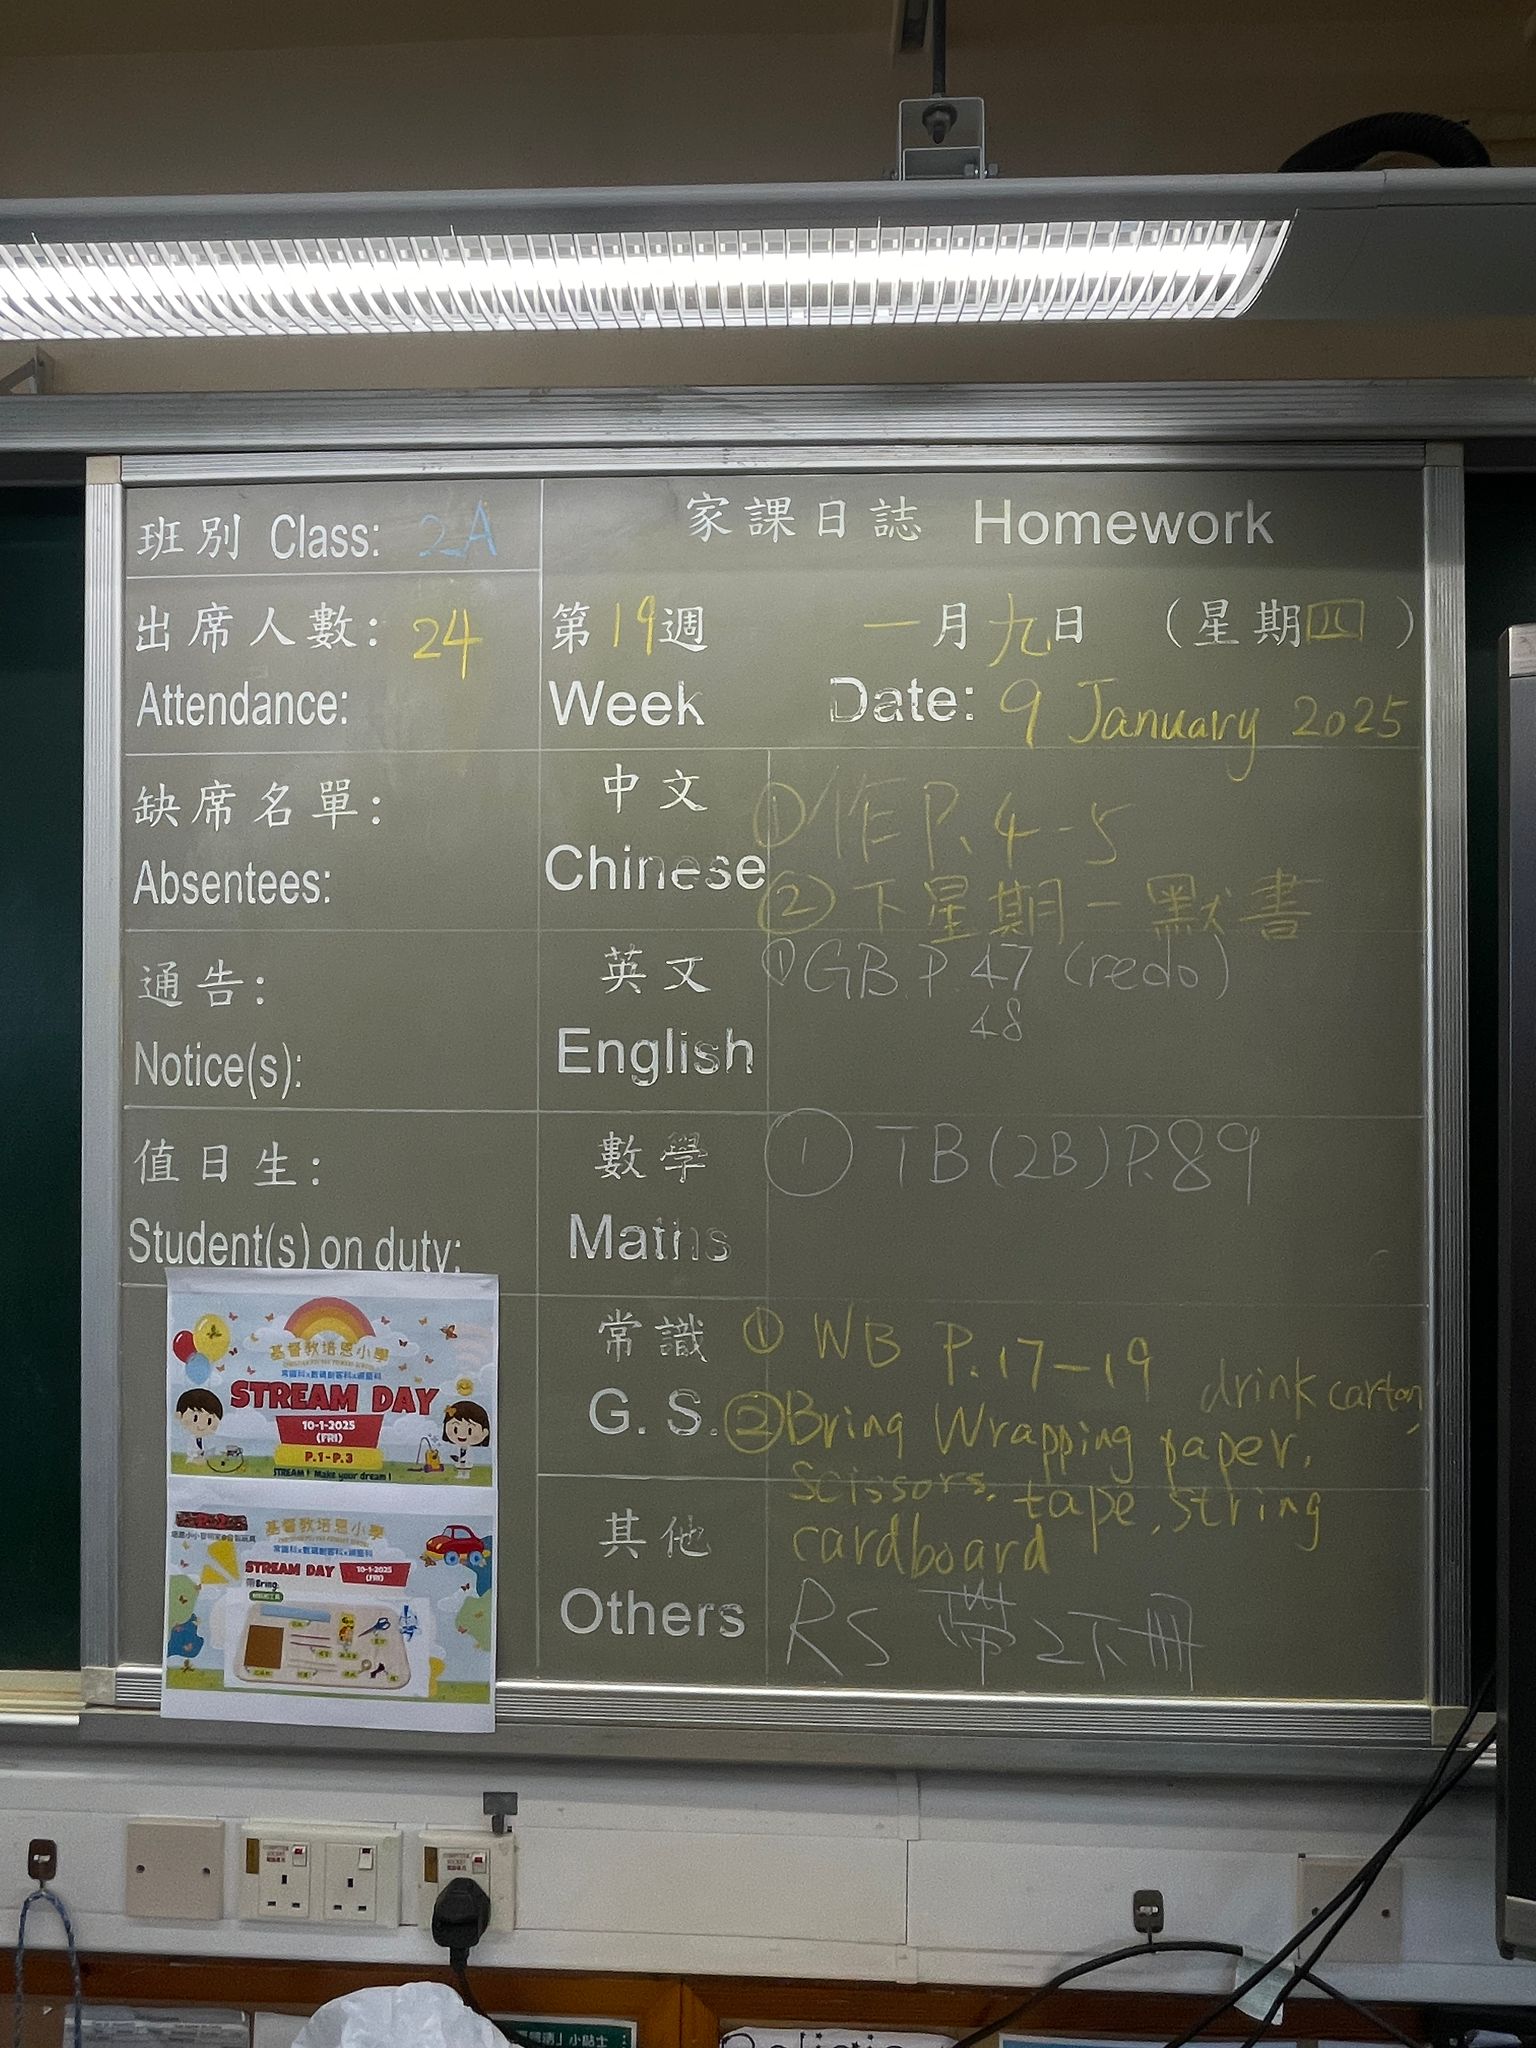 班別 Class: 2A
家課日誌 Homework
出席人數: 24
Attendance:
第19週 一月九日 （星期四）
Week Date: 9 January 2025
缺席名單:
Absentees:
中文
Chinese
①作 P. 4-5
② 下星期一默書
通告:
Notice(s):
英文
English
①GB.P. 47 (redo)
48
值日生:
Student(s) on duty:
數學
Maths
① TB(2B)P.89
常識
G. S.
① WB P.17-19
drink carton,
②Bring Wrapping paper,
scissors, tape, string
cardboard
其他
Others
RS 帶2下冊
基督教培恩小學
STREAM DAY
10-1-2025
(FRI)
P.1-P.3
STREAM! Make your dream!
基督教培恩小學
STREAM DAY
10-1-2025
(FRI)
帶Bring:
小貼士